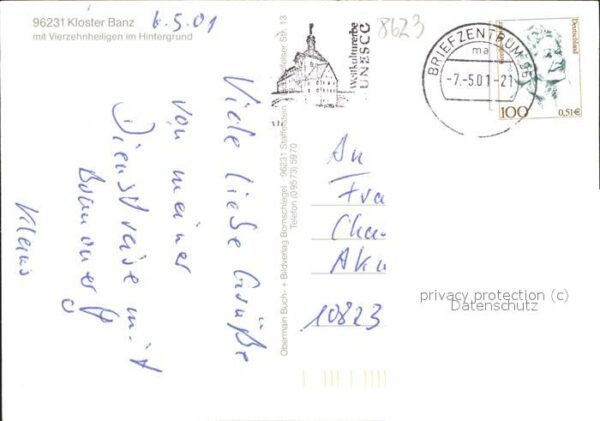 96231 Kloster Banz
mit Vierzehnheiligen im Hintergrund
6.5.01
Viele liebe Grüße
von meiner
Dienstreise mit
Klaus
Obermain Buch- + Bildverlag Bornschlegel · 96231 Staffelstein Str. 13
Telefon (09573) 5970
Weltkulturerbe
UNESCO
8623
BRIEFZENTRUM 96
ma
-7.-5.01-21
Deutschland
100
0,51€
An
Fra
Cha
Aku
10823
privacy protection (c)
Datenschutz